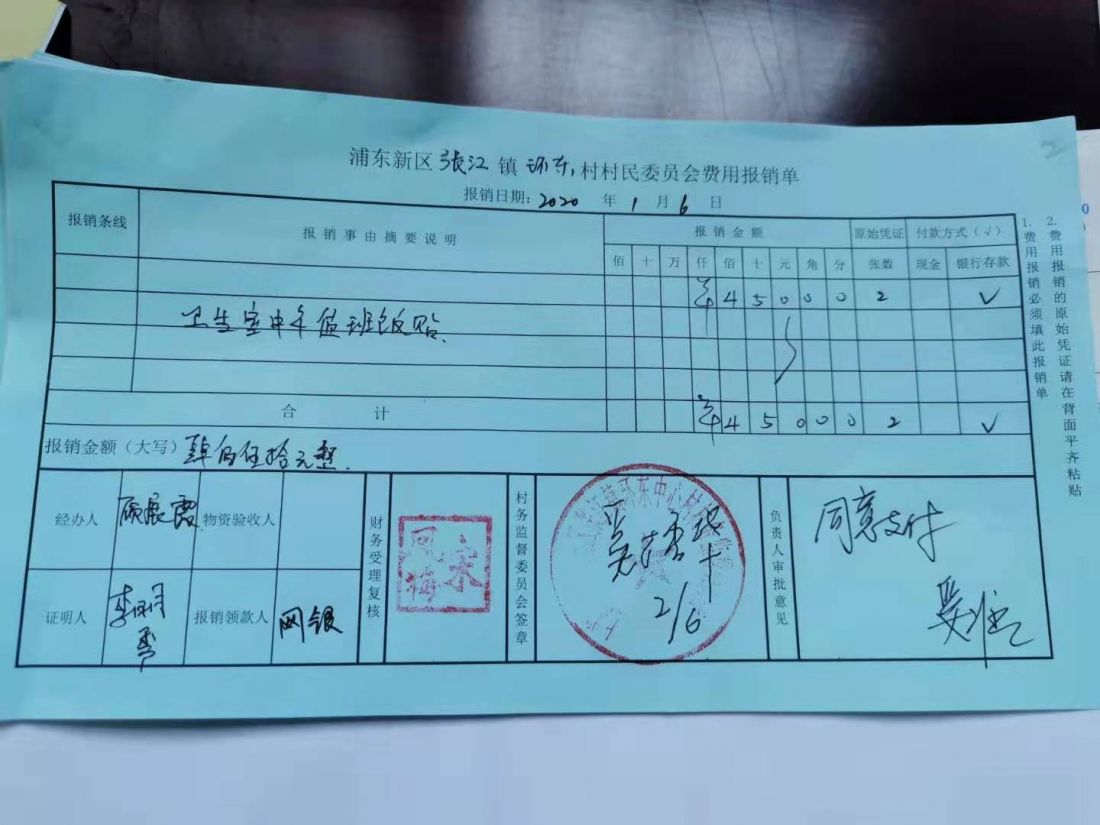 浦东新区 张江 镇 环东 村村民委员会费用报销单
报销日期：2020 年 1 月 6 日
报销条线 报销事由摘要说明 报销金额 原始凭证 付款方式（√）
佰 十 万 仟 佰 十 元 角 分 张数 现金 银行存款
¥ 4 5 0 0 0 2 √
卫生室中午值班饭贴
合计 ¥ 4 5 0 0 0 2 √
报销金额（大写）肆佰伍拾元整
经办人 顾 霞 物资验收人
证明人 报销领款人 网银
财务受理复核
村务监督委员会签章
2/6
负责人审批意见
同意支付
1. 费用报销必须填此报销单
2. 费用报销的原始凭证请在背面平齐粘贴
2